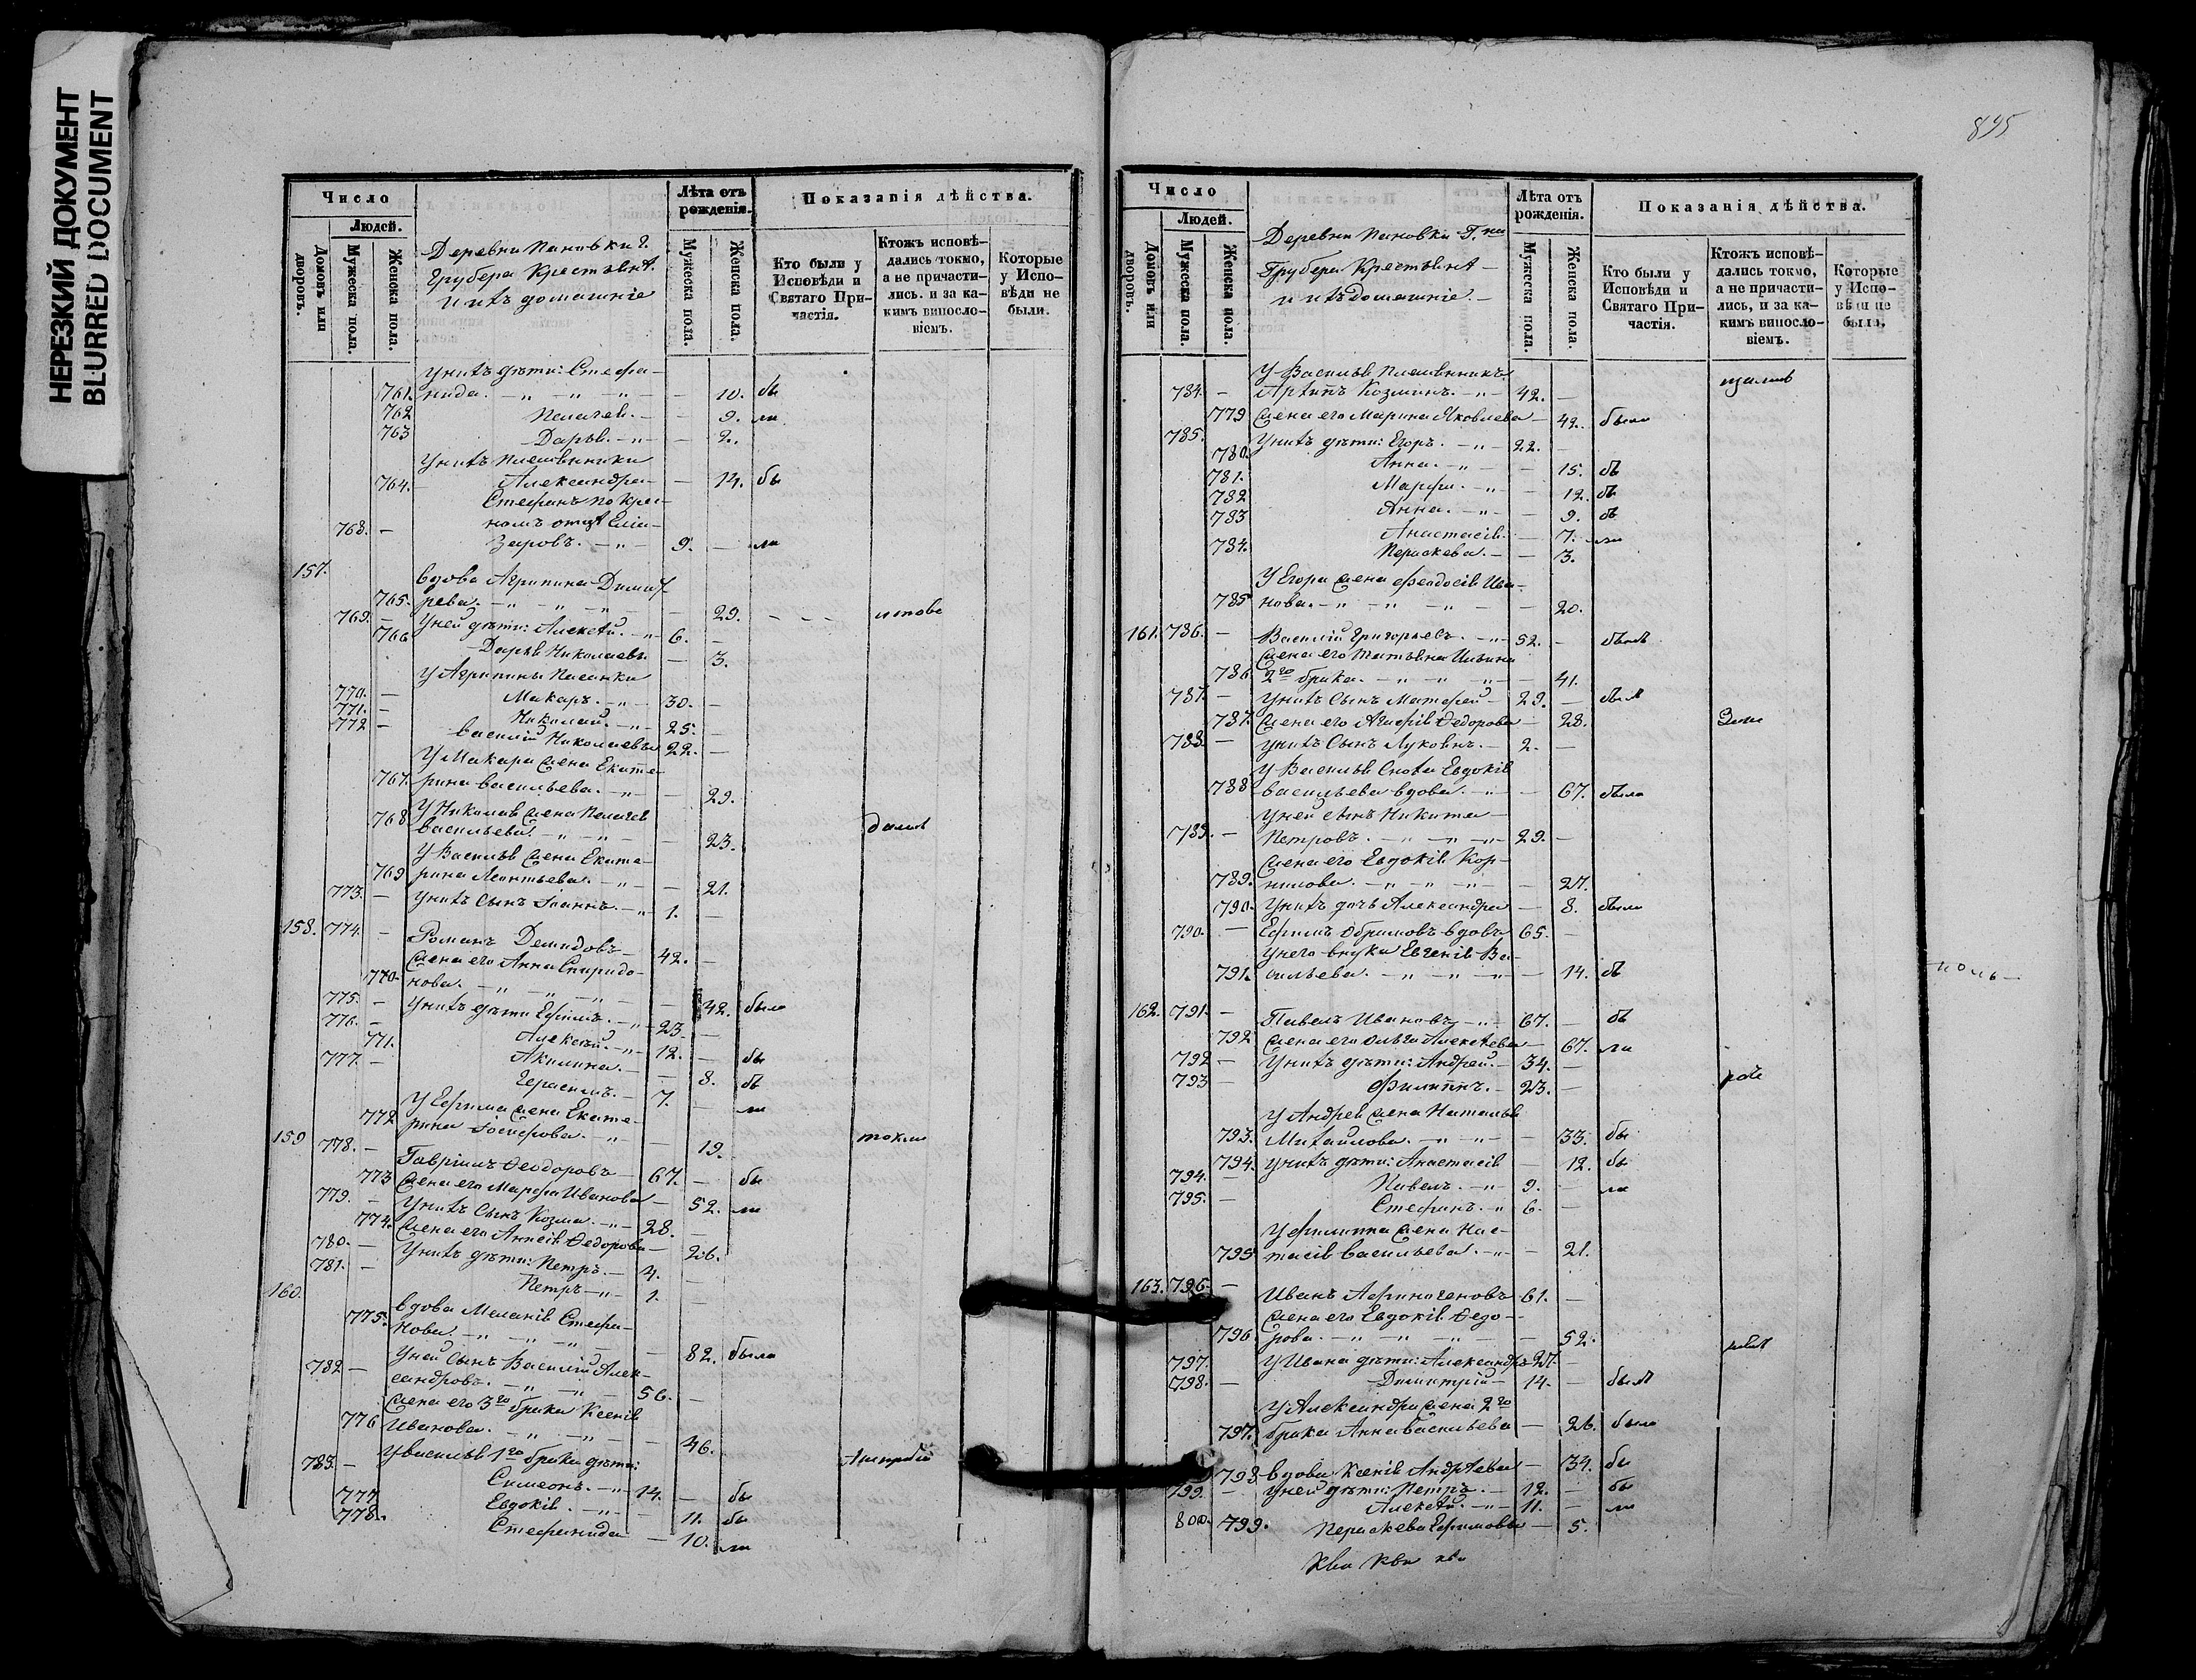 НЕРЕЗКИЙ ДОКУМЕНТ
BLURRED DOCUMENT
Число
Людей.
Домовъ или дворовъ.
Мужеска пола.
Женска пола.
Деревни Пановки г.
Грубера Крестьянѣ
и ихъ домашніе
Лѣта отъ рожденія.
Мужеска пола.
Женска пола.
Показанія дѣйства.
Кто были у Исповѣди и Святаго Причастія.
Ктожъ исповѣдались токмо, а не причастились. и за какимъ винословіемъ.
Которые у Исповѣди не были.
Унихъ дѣти: Стефа-
761. нида. — 10. бы
762 Пелагея. — 9. ли
763 Дарья. — 2.
Унихъ племянники
764. Александра — 14. бы
Стефанъ по крес-
номъ отцѣ Елиа-
768. — заровъ. 9. — ли
157.
вдова Агрипина Димит
765. рева. — 29. — — —
769. — Уней дѣти: Алексѣй. 6. —
766 Дарья Николаевы — 3.
У Агрипины пасынки
770. — Макаръ. 30. —
771. — Николай. 25. —
772 — Василій Николаевы 22. —
У Макара жена Екате-
767. рина Васильева. — 29.
У Николая жена Пелагея
768 Васильева. — 23.
У Василья жена Екате-
769 рина Леонтьева. — 21.
773. — Унихъ сынъ Іоаннъ. 1. —
158. 774. — Романъ Демидовъ 42. —
жена его Анна Спиридо-
770. нова. — 42. была
775. — Унихъ дѣти Ефимъ. 23. —
776. — Алексѣй. 12. — бы
771. Акилина. — 8. бы
777. — Герасимъ. 7. — ли
У Ефима жена Екате-
772 рина Іосифова. — 19.
159 778. — Гавріилъ Ѳеодоровъ 67. — бы
773 жена его Марфа Иванова — 52. ли
779. — Унихъ сынъ Козма. 28. —
774. жена его Анисія Ѳедорова — 26.
780. — Унихъ дѣти: Петръ. 4. —
781. — Петръ 1. —
160.
вдова Меланія Стефа-
775. нова. — 82. была
Уней сынъ Василій Алек-
782 — сандровъ. 56. —
жена его 3го брака Ксенія
776 Иванова. — 46.
У Василья 1го брака дѣти:
783. — Симеонъ. 14. — бы
777 Евдокія. — 11. бы
778. Стефанида — 10. ли
895
Число
Людей.
Домовъ или дворовъ.
Мужеска пола.
Женска пола.
Деревни Пановки Г.на
Грубера Крестьянѣ
и ихъ домашніе.
Лѣта отъ рожденія.
Мужеска пола.
Женска пола.
Показанія дѣйства.
Кто были у Исповѣди и Святаго Причастія.
Ктожъ исповѣдались токмо, а не причастились, и за какимъ винословіемъ.
Которые у Исповѣди не были.
У Василья племянникъ
784. — Архипъ Козминъ. 42. —
779 жена его Марина Яковлева — 42. была
785. Унихъ дѣти: Егоръ. 22. —
780. Анна. — 15. бы
781. Марфа. — 12. бы
782 Анна. — 9. бы
783 Анастасія. — 7. ли
784. Параскева. — 3.
У Егора жена Феодосія Ива-
785 нова. — 20.
161. 786. — Василій Григорьевъ. 52. — былъ
жена его Татьяна Ильина
786. 2го брака. — 41.
787. — Унихъ сынъ Матфей 29. — былъ
787. жена его Агафія Ѳедорова — 28.
788. — унихъ сынъ Лукоянъ. 2. —
У Василья сноха Евдокія
788 Васильева вдова. — 67. была
Уней сынъ Никита
789. — Петровъ. 29. —
жена его Евдокія Кор-
789. нилова. — 27.
790. Унихъ дочь Александра — 8. была
790. — Ефимъ Абрамовъ вдовъ 65. —
Унего внука Евгенія Ва-
791. сильева. — 14. бы
162. 791. — Павелъ Ивановъ 67. — бы
792 жена его Ольга Алексѣева — 67. ли
792 — Унихъ дѣти: Андрей. 34. —
793 — Филиппъ. 23. —
У Андрея жена Наталья
793. Михайлова. — 33. бы
794. унихъ дѣти: Анастасія — 12. бы
794. — Павелъ. 9. — ли
795. — Стефанъ. 6. —
У Филиппа жена Нас-
795 тасія Васильева. — 21.
163. 796. — Иванъ Афиногеновъ 61. —
жена его Евдокія Ѳедо-
796. рова. — 52.
797. У Ивана дѣти: Александръ 27. —
798. — Димитрій 14. — былъ
У Александра жена 2го
797. брака Анна Васильева — 26. была
798 вдова Ксенія Андрѣева — 34. бы
799. — Уней дѣти: Петръ. 12. — бы
Алексѣй. 11. — ли
800. 799. Параскева Ефимовы — 5.